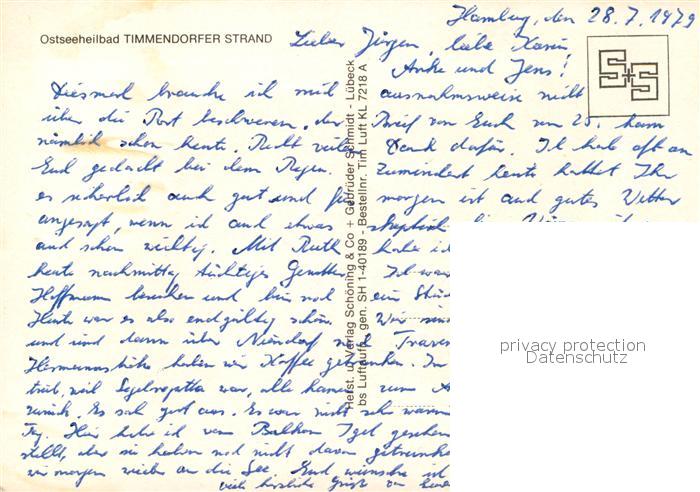 Hamburg, den 28.7.1979
Ostseeheilbad TIMMENDORFER STRAND
Lieber Jürgen, liebe Karin
Anke und Jens!
Diesmal brauche ich mich ausnahmsweise nicht
über die Post beschweren, der Brief von Euch vom 25. kam
nämlich schon heute. Recht vielen Dank dafür. Ich hab oft an
Euch gedacht bei dem Regen. Zumindest heute hattet Ihr
es sicherlich auch gut und für morgen ist auch gutes Wetter
angesagt, wenn ich auch etwas skeptisch
und schon wichtig. Mit Ruth habe ich
heute nachmittag tüchtiges Gewitter. Ich war
Hoffmann besuchen und bin noch ein
Heute war es also endgültig schön. Wir
und sind dann über Niendorf nach Trave
Hermannshöhe haben wir Kaffee getrunken. In
trieb, weil Segelregatta war, alle kamen zum
zurück. Es sah gut aus. Es war nicht sehr warm
Tag. Hier habe ich vom Balkon Igel gesehen
stellt, aber sie haben noch nicht davon getrunken
wir morgen wieder an die See. Euch wünsche ich
viele herzliche Grüße von
Herst. u. Verlag Schöning & Co + Gebrüder Schmidt - Lübeck
bs Luftaufn. gen. SH 1-40189 - Bestellnr. Tim Luft KL 7218 A
S+S
privacy protection
Datenschutz